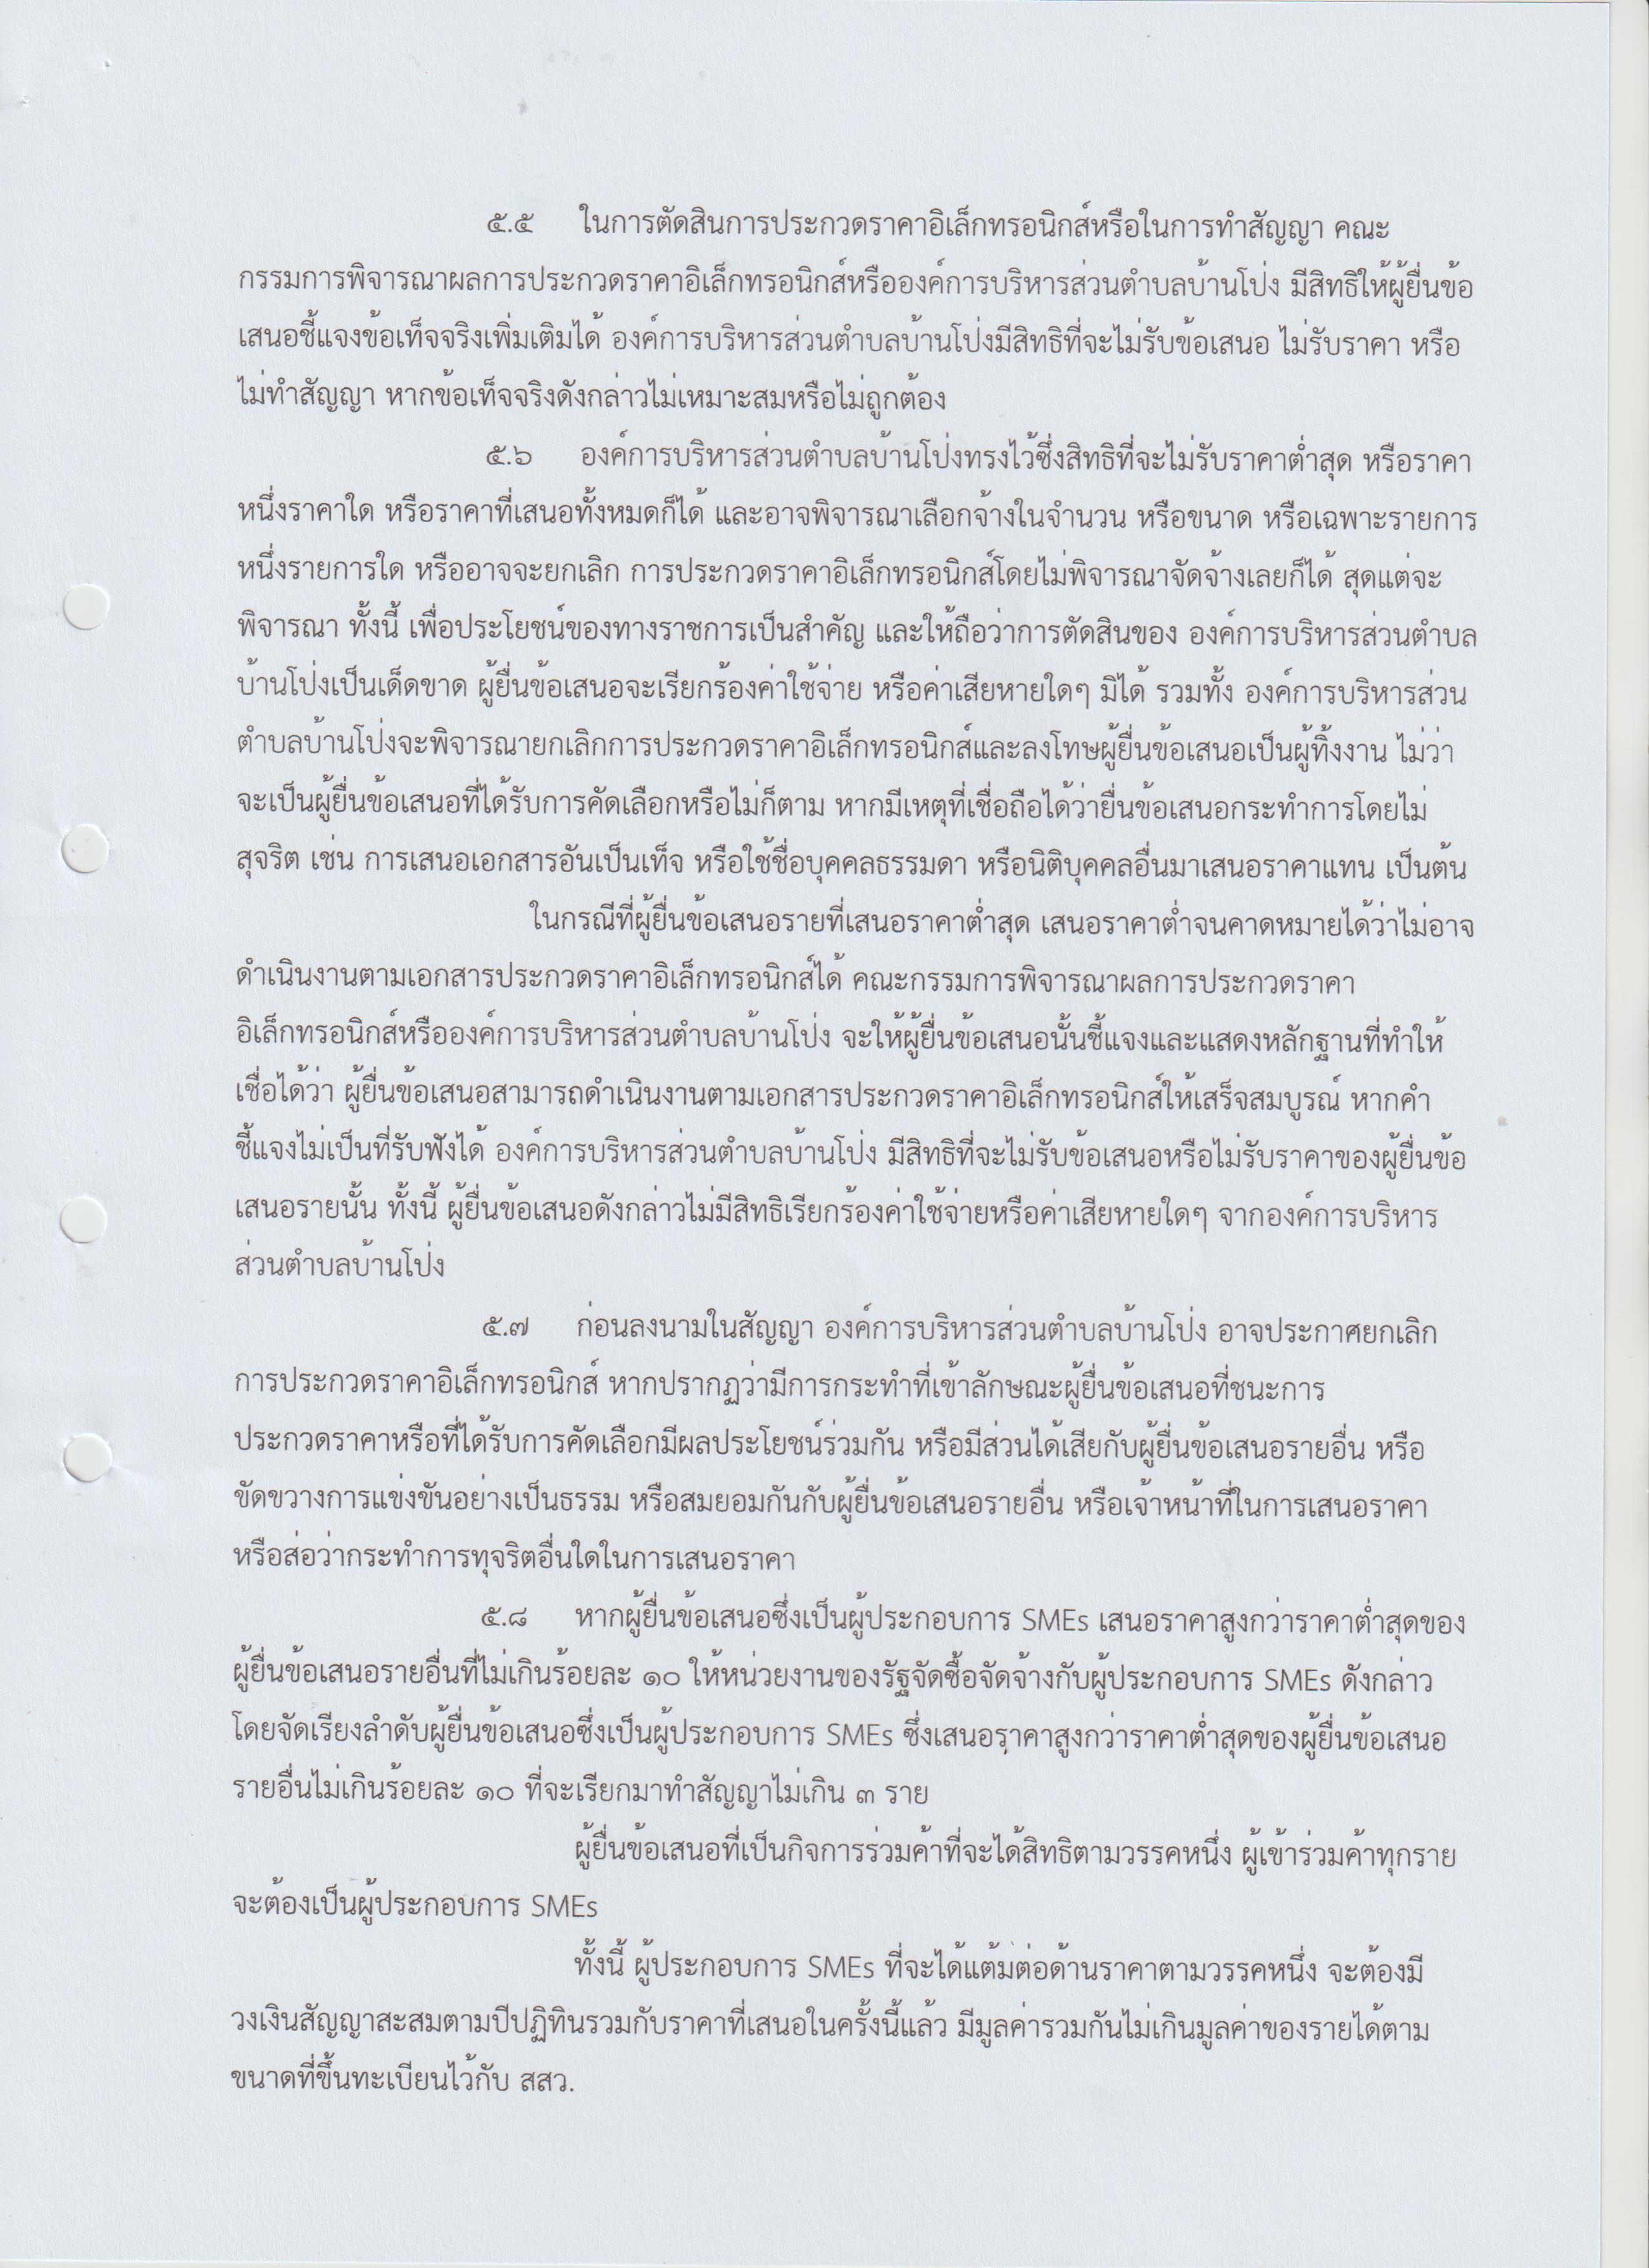 ๕.๕ ในการตัดสินการประกวดราคาอิเล็กทรอนิกส์หรือในการทำสัญญา คณะ
กรรมการพิจารณาผลการประกวดราคาอิเล็กทรอนิกส์หรือองค์การบริหารส่วนตำบลบ้านโป่ง มีสิทธิให้ผู้ยื่นข้อ
เสนอชี้แจงข้อเท็จจริงเพิ่มเติมได้ องค์การบริหารส่วนตำบลบ้านโป่งมีสิทธิที่จะไม่รับข้อเสนอ ไม่รับราคา หรือ
ไม่ทำสัญญา หากข้อเท็จจริงดังกล่าวไม่เหมาะสมหรือไม่ถูกต้อง
๕.๖ องค์การบริหารส่วนตำบลบ้านโป่งทรงไว้ซึ่งสิทธิที่จะไม่รับราคาต่ำสุด หรือราคา
หนึ่งราคาใด หรือราคาที่เสนอทั้งหมดก็ได้ และอาจพิจารณาเลือกจ้างในจำนวน หรือขนาด หรือเฉพาะรายการ
หนึ่งรายการใด หรืออาจจะยกเลิก การประกวดราคาอิเล็กทรอนิกส์โดยไม่พิจารณาจัดจ้างเลยก็ได้ สุดแต่จะ
พิจารณา ทั้งนี้ เพื่อประโยชน์ของทางราชการเป็นสำคัญ และให้ถือว่าการตัดสินของ องค์การบริหารส่วนตำบล
บ้านโป่งเป็นเด็ดขาด ผู้ยื่นข้อเสนอจะเรียกร้องค่าใช้จ่าย หรือค่าเสียหายใดๆ มิได้ รวมทั้ง องค์การบริหารส่วน
ตำบลบ้านโป่งจะพิจารณายกเลิกการประกวดราคาอิเล็กทรอนิกส์และลงโทษผู้ยื่นข้อเสนอเป็นผู้ทิ้งงาน ไม่ว่า
จะเป็นผู้ยื่นข้อเสนอที่ได้รับการคัดเลือกหรือไม่ก็ตาม หากมีเหตุที่เชื่อถือได้ว่ายื่นข้อเสนอกระทำการโดยไม่
สุจริต เช่น การเสนอเอกสารอันเป็นเท็จ หรือใช้ชื่อบุคคลธรรมดา หรือนิติบุคคลอื่นมาเสนอราคาแทน เป็นต้น
ในกรณีที่ผู้ยื่นข้อเสนอรายที่เสนอราคาต่ำสุด เสนอราคาต่ำจนคาดหมายได้ว่าไม่อาจ
ดำเนินงานตามเอกสารประกวดราคาอิเล็กทรอนิกส์ได้ คณะกรรมการพิจารณาผลการประกวดราคา
อิเล็กทรอนิกส์หรือองค์การบริหารส่วนตำบลบ้านโป่ง จะให้ผู้ยื่นข้อเสนอนั้นชี้แจงและแสดงหลักฐานที่ทำให้
เชื่อได้ว่า ผู้ยื่นข้อเสนอสามารถดำเนินงานตามเอกสารประกวดราคาอิเล็กทรอนิกส์ให้เสร็จสมบูรณ์ หากคำ
ชี้แจงไม่เป็นที่รับฟังได้ องค์การบริหารส่วนตำบลบ้านโป่ง มีสิทธิที่จะไม่รับข้อเสนอหรือไม่รับราคาของผู้ยื่นข้อ
เสนอรายนั้น ทั้งนี้ ผู้ยื่นข้อเสนอดังกล่าวไม่มีสิทธิเรียกร้องค่าใช้จ่ายหรือค่าเสียหายใดๆ จากองค์การบริหาร
ส่วนตำบลบ้านโป่ง
๕.๗ ก่อนลงนามในสัญญา องค์การบริหารส่วนตำบลบ้านโป่ง อาจประกาศยกเลิก
การประกวดราคาอิเล็กทรอนิกส์ หากปรากฏว่ามีการกระทำที่เข้าลักษณะผู้ยื่นข้อเสนอที่ชนะการ
ประกวดราคาหรือที่ได้รับการคัดเลือกมีผลประโยชน์ร่วมกัน หรือมีส่วนได้เสียกับผู้ยื่นข้อเสนอรายอื่น หรือ
ขัดขวางการแข่งขันอย่างเป็นธรรม หรือสมยอมกันกับผู้ยื่นข้อเสนอรายอื่น หรือเจ้าหน้าที่ในการเสนอราคา
หรือส่อว่ากระทำการทุจริตอื่นใดในการเสนอราคา
๕.๘ หากผู้ยื่นข้อเสนอซึ่งเป็นผู้ประกอบการ SMEs เสนอราคาสูงกว่าราคาต่ำสุดของ
ผู้ยื่นข้อเสนอรายอื่นที่ไม่เกินร้อยละ ๑๐ ให้หน่วยงานของรัฐจัดซื้อจัดจ้างกับผู้ประกอบการ SMEs ดังกล่าว
โดยจัดเรียงลำดับผู้ยื่นข้อเสนอซึ่งเป็นผู้ประกอบการ SMEs ซึ่งเสนอราคาสูงกว่าราคาต่ำสุดของผู้ยื่นข้อเสนอ
รายอื่นไม่เกินร้อยละ ๑๐ ที่จะเรียกมาทำสัญญาไม่เกิน ๓ ราย
ผู้ยื่นข้อเสนอที่เป็นกิจการร่วมค้าที่จะได้สิทธิตามวรรคหนึ่ง ผู้เข้าร่วมค้าทุกราย
จะต้องเป็นผู้ประกอบการ SMEs
ทั้งนี้ ผู้ประกอบการ SMEs ที่จะได้แต้มต่อด้านราคาตามวรรคหนึ่ง จะต้องมี
วงเงินสัญญาสะสมตามปีปฏิทินรวมกับราคาที่เสนอในครั้งนี้แล้ว มีมูลค่ารวมกันไม่เกินมูลค่าของรายได้ตาม
ขนาดที่ขึ้นทะเบียนไว้กับ สสว.